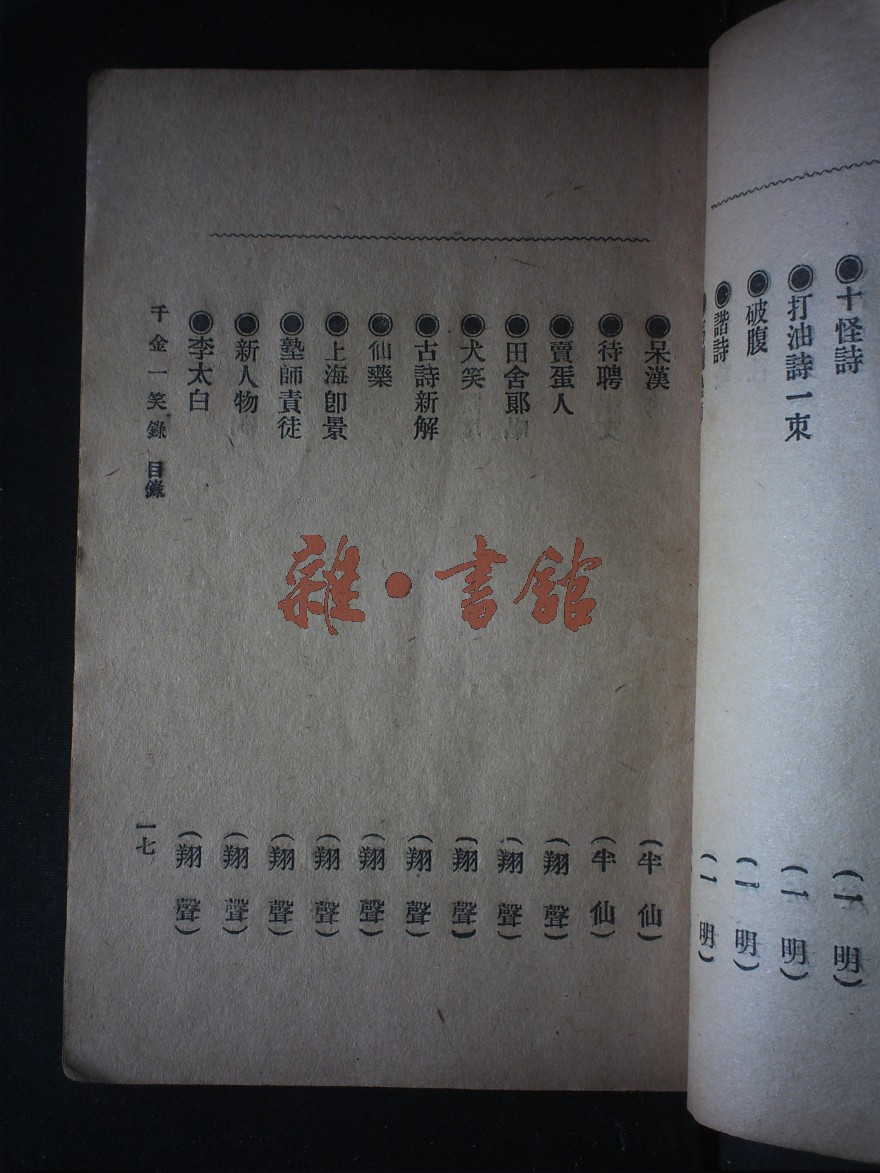 十怪詩 (一明)
打油詩一束 (一明)
破腹 (一明)
諧詩 (一明)
呆漢 (半仙)
待聘 (半仙)
賣蛋人 (翔聲)
田舍郞 (翔聲)
犬笑 (翔聲)
古詩新解 (翔聲)
仙藥 (翔聲)
上海卽景 (翔聲)
塾師責徒 (翔聲)
新人物 (翔聲)
李太白 (翔聲)
千金一笑錄 目錄 一七
雜·書館